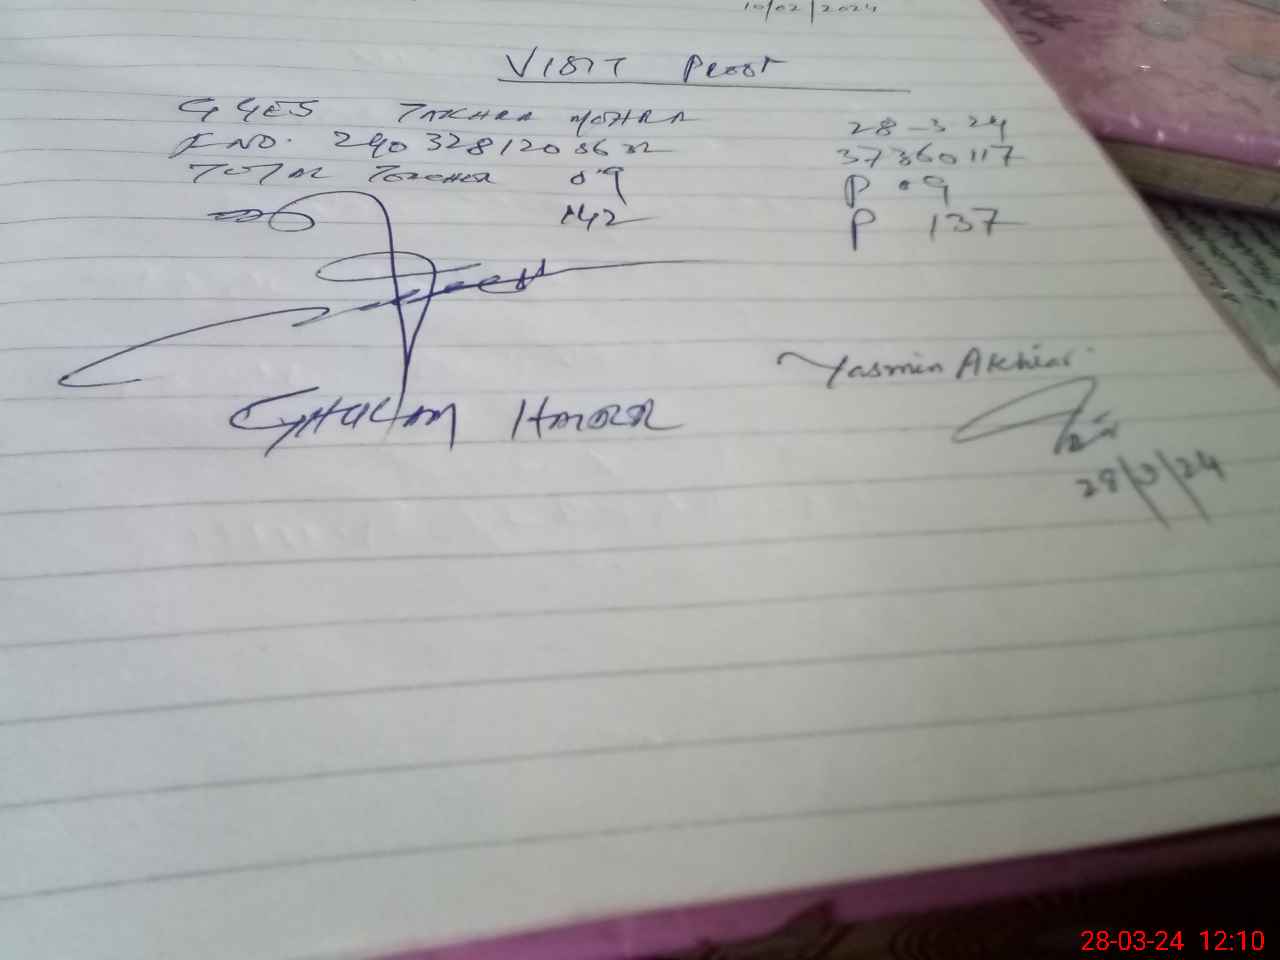 10/02/2024
VISIT Proof
GGES TAKHRA MOHRA 28-3 24
I NO. 240328120 8632 37360117
TOTAL TEACHER 09 P 09
142 P 137
Yasmin Akhtar
GHULAM HAIDER
28/3/24
28-03-24 12:10